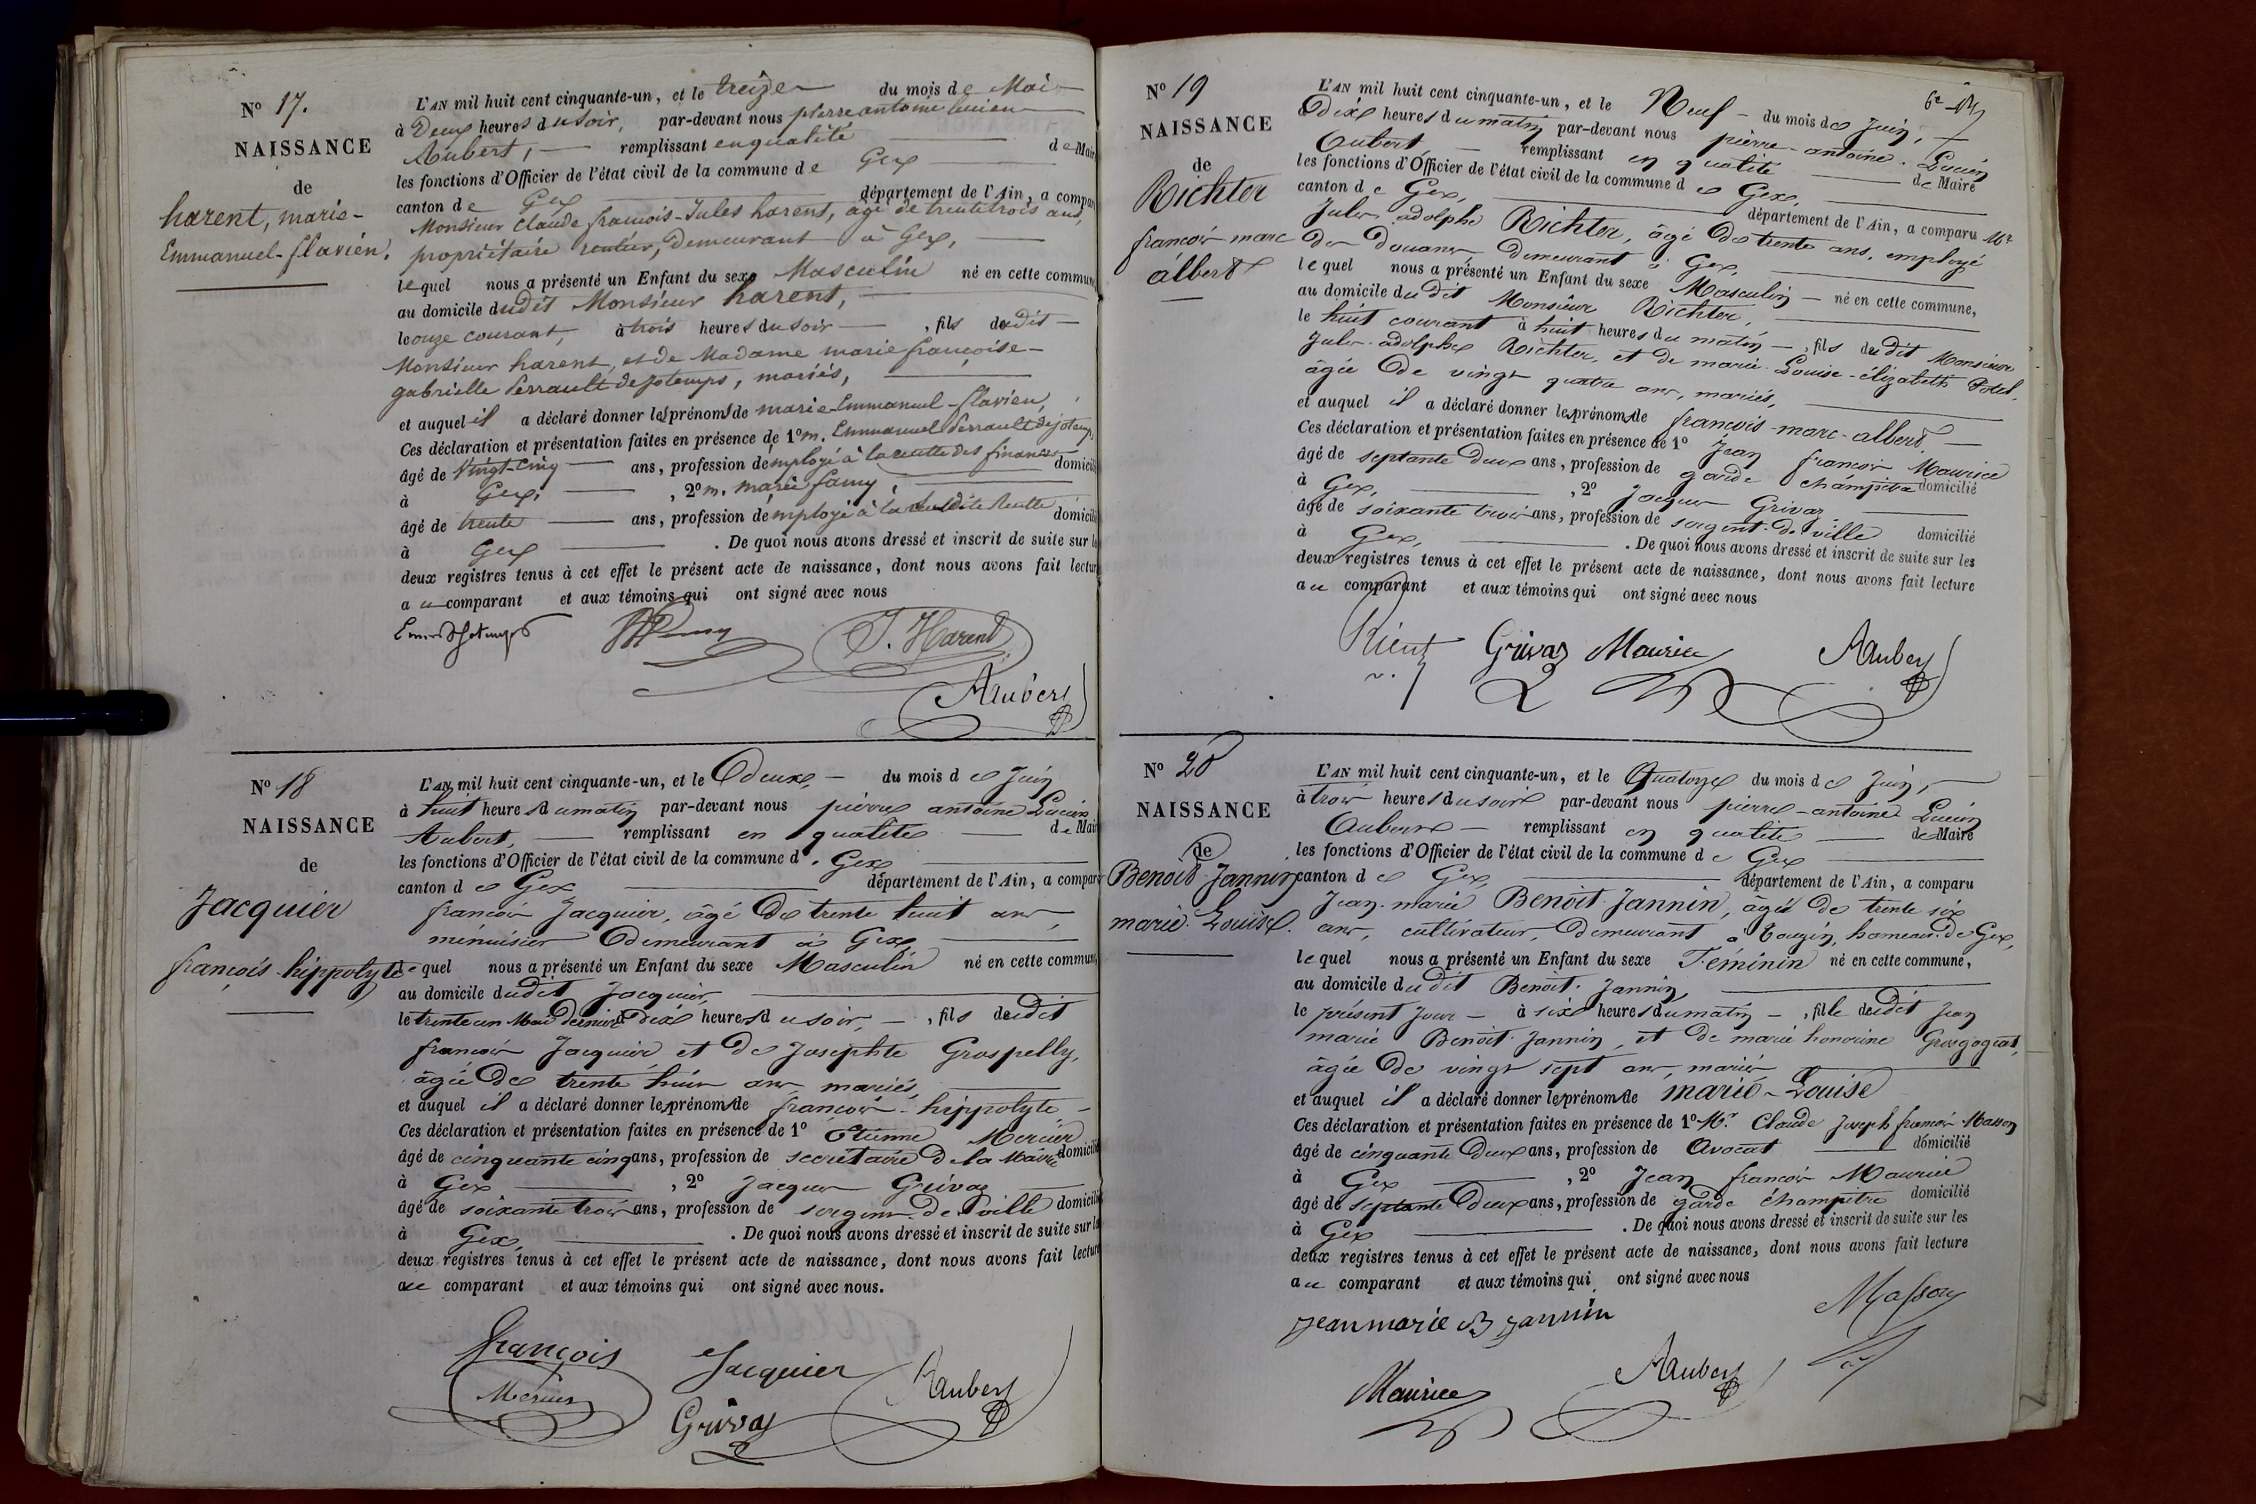 N° 17.
NAISSANCE
de
harent, marie-
Emmanuel-flavien.
L'AN mil huit cent cinquante-un, et le treize du mois de Mai
à Deux heures du soir, par-devant nous pierre antoine lucien
Aubert, remplissant en qualité de Mair
les fonctions d'Officier de l'état civil de la commune de Gex
canton de Gex département de l'Ain, a compar
Monsieur Claude françois-Jules harent, âgé de trentetrois ans,
propriétaire rentier, demeurant à Gex,
lequel nous a présenté un Enfant du sexe Masculin né en cette commun
au domicile dudit Monsieur harent,
le onze courant, à trois heures du soir, fils dudit
Monsieur harent, et de Madame marie françoise-
gabrielle Perrault de jotemps, mariés,
et auquel il a déclaré donner les prénoms de marie-Emmanuel-flavien,
Ces déclaration et présentation faites en présence de 1° m. Emmanuel Perrault de jotemps
âgé de Vingt-cinq ans, profession d'employé à la recette des finances domicili
à Gex, , 2° m. marie famy,
âgé de trente ans, profession d'employé à la susdite Recette domicili
à Gex . De quoi nous avons dressé et inscrit de suite sur le
deux registres tenus à cet effet le présent acte de naissance, dont nous avons fait lectur
au comparant et aux témoins qui ont signé avec nous
J. Harent
Aubert
N° 18
NAISSANCE
de
Jacquier
françois-hippolyte
L'AN mil huit cent cinquante-un, et le Deux, du mois de Juin
à huit heures du matin par-devant nous pierre antoine Lucien
Aubert, remplissant en qualité de Mair
les fonctions d'Officier de l'état civil de la commune de Gex
canton de Gex département de l'Ain, a compar
françois Jacquier, âgé de trente huit ans,
ménuisier Demeurant à Gex,
lequel nous a présenté un Enfant du sexe Masculin né en cette commun
au domicile dudit Jacquier,
le trente un Mai dernier à dix heures du soir, , fils dudit
françois Jacquier et de Josephte Grospelly,
âgée de trente huit ans mariés,
et auquel il a déclaré donner les prénoms de françois-hippolyte
Ces déclaration et présentation faites en présence de 1° Etienne Mercier
âgé de cinquante cinq ans, profession de secrétaire de la Mairie domicilié
à Gex , 2° Jacques Grivaz
âgé de soixante trois ans, profession de sergent de ville domicili
à Gex, . De quoi nous avons dressé et inscrit de suite sur le
deux registres tenus à cet effet le présent acte de naissance, dont nous avons fait lecture
au comparant et aux témoins qui ont signé avec nous.
françois Jacquier
Mercier
Grivaz
Aubert
N° 19
NAISSANCE
de
Richter
françois marc
albert
L'AN mil huit cent cinquante-un, et le Neuf du mois de Juin,
à Dix heures du matin par-devant nous pierre-antoine. Lucien
Aubert remplissant en qualité de Maire
les fonctions d'Officier de l'état civil de la commune de Gex,
canton de Gex, département de l'Ain, a comparu Mr
Jules adolphe Richter, âgé de trente ans, employé
des Douanes demeurant à Gex,
lequel nous a présenté un Enfant du sexe Masculin né en cette commune,
au domicile dudit Monsieur Richter,
le huit courant à huit heures du matin , fils dudit Monsieur
Jules-adolphe Richter, et de marie-Louise-élizabeth Potel,
âgée de vingt quatre ans, mariés,
et auquel il a déclaré donner les prénoms de françois-marc-albert
Ces déclaration et présentation faites en présence de 1° Jean françois Maurice
âgé de septante deux ans, profession de garde champêtre domicilié
à Gex, , 2° Jacques Grivaz
âgé de soixante trois ans, profession de sergent de ville domicilié
à Gex, . De quoi nous avons dressé et inscrit de suite sur les
deux registres tenus à cet effet le présent acte de naissance, dont nous avons fait lecture
au comparant et aux témoins qui ont signé avec nous
Grivaz Maurice Aubert
N° 20
NAISSANCE
de
Benoit-Jannin
marie-Louise.
L'AN mil huit cent cinquante-un, et le Quatorze du mois de Juin,
à trois heures du soir par-devant nous pierre-antoine Lucien
Aubert remplissant en qualité de Maire
les fonctions d'Officier de l'état civil de la commune de Gex
canton de Gex, département de l'Ain, a comparu
Jean-marie Benoit-Jannin, âgé de trente six
ans, cultivateur, demeurant à Tougin, hameau de Gex,
lequel nous a présenté un Enfant du sexe Féminin né en cette commune,
au domicile dudit Benoit-Jannin,
le présent jour à six heures du matin , fille dudit Jean
marie Benoit-Jannin, et de marie honorine Grosgogeat,
âgée de vingt sept ans, mariés
et auquel il a déclaré donner les prénoms de marie-Louise
Ces déclaration et présentation faites en présence de 1° Mr. Claude Joseph françois Masson
âgé de cinquante Deux ans, profession de Avocat domicilié
à Gex , 2° Jean françois Maurice
âgé de septante Deux ans, profession de garde champêtre domicilié
à Gex . De quoi nous avons dressé et inscrit de suite sur les
deux registres tenus à cet effet le présent acte de naissance, dont nous avons fait lecture
au comparant et aux témoins qui ont signé avec nous
jean marie B jannin Masson
Maurice Aubert